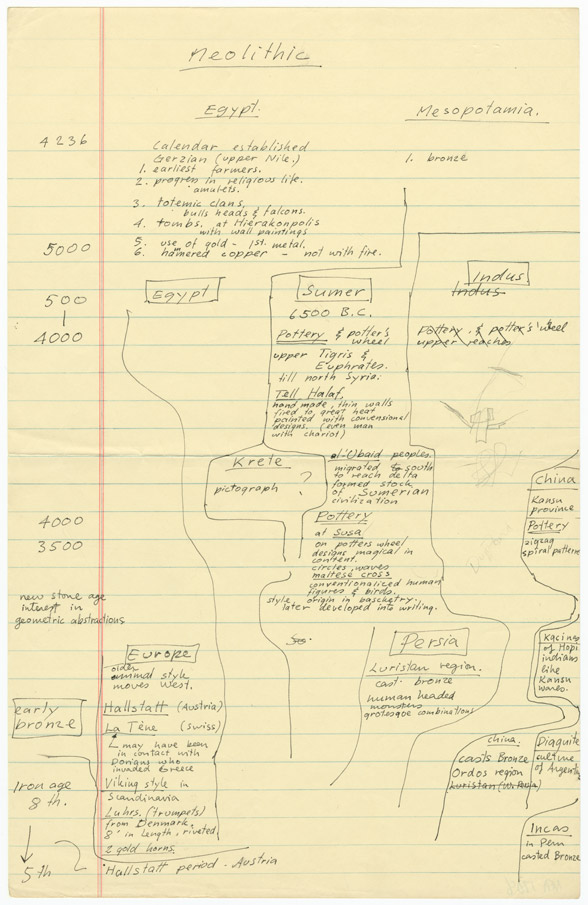 Neolithic
Egypt.
Mesopotamia.
4236
Calendar established
Gerzian (upper Nile.)
1. earliest farmers.
2. progress in religious life.
amulets.
3. totemic clans,
bulls heads & falcons.
4. tombs. at Hierakonpolis
with wall paintings
5. use of gold - 1st. metal.
6. hamered copper - not with fire.
1. bronze
5000
500
4000
Egypt
Sumer
6500 B.C.
Pottery & potter's
wheel
upper Tigris &
Euphrates.
till north Syria:
Tell Halaf.
hand made, thin walls
fired to great heat
painted with conventional
designs. (even man
with chariot)
Indus
Indus
Pottery. & potter's wheel
upper reaches
Krete
pictograph ?
al'Ubaid peoples.
migrated to south
to reach delta
formed stock
of Sumerian
civilization
4000
3500
Pottery
at Susa
on potters wheel
designs magical in
content.
circles, waves
maltese cross
conventionalized human
figures & birds.
style, origin in basketry.
later developed into writing.
China
Kansu
province
Pottery
zigzag
spiral patterns
new stone age
interest in
geometric abstractions
Europe
older
animal style
moves West.
Hallstatt (Austria)
La Tène (swiss)
may have been
in contact with
Dorians who
invaded Greece
Viking style in
Scandinavia
Luhrs. (trumpets)
from Denmark.
8' in length, riveted.
2 gold horns.
Hallstatt period. Austria
early
bronze
Iron age
8 th.
5 th
Persia
Luristan region.
cast. bronze
human headed
monsters
grotesque combinations
Kacinas
of Hopi
indians
like
Kansu
wares.
china:
casts Bronze
Ordos region
Luristan
Diaguite
culture
of Argentina
Incas
in Peru
casted Bronze